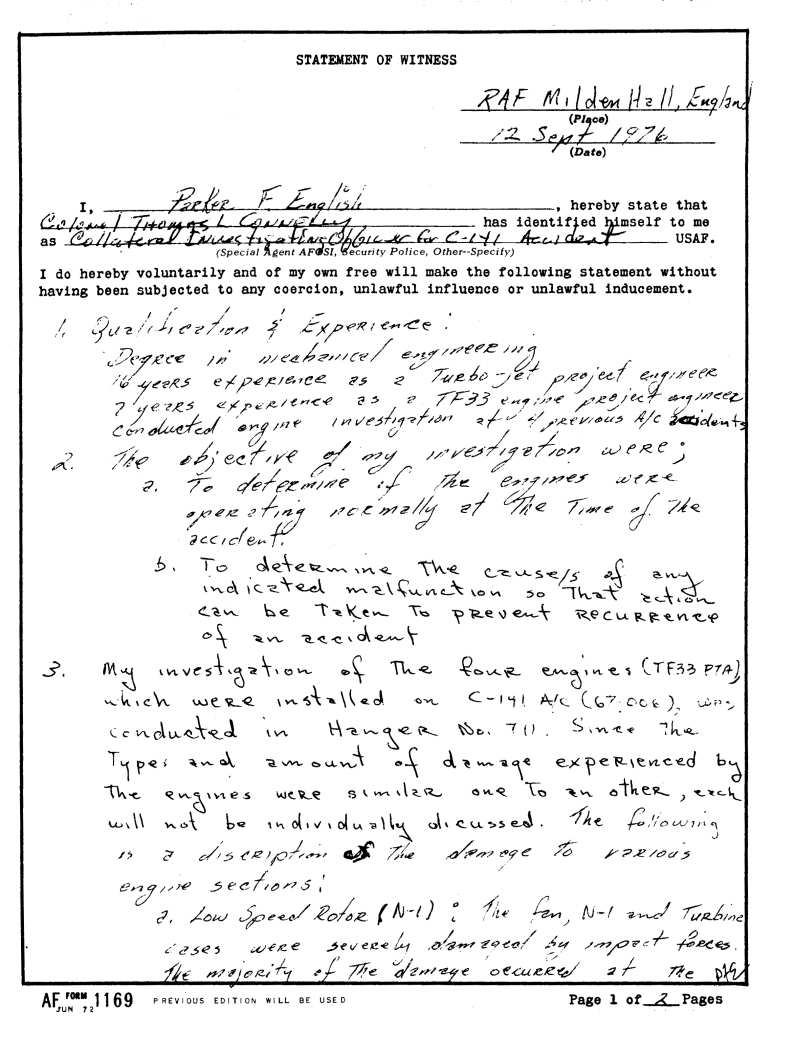 STATEMENT OF WITNESS
RAF MildenHall, England
(Place)
12 Sept 1976
(Date)
I, Parker F. English, hereby state that
Colonel Thomas L Connelly has identified himself to me
as Collateral Investigating Officer for C-141 Accident USAF.
(Special Agent AFOSI, Security Police, Other--Specify)
I do hereby voluntarily and of my own free will make the following statement without
having been subjected to any coercion, unlawful influence or unlawful inducement.
1. Qualification & Experience:
Degree in mechanical engineering
16 years experience as a Turbo-jet project engineer
7 years experience as a TF33 engine project engineer
conducted engine investigation at 4 previous A/C accidents
2. The objective of my investigation were;
a. To determine if the engines were
operating normally at The Time of The
accident.
b. To determine The cause/s of any
indicated malfunction so That action
can be Taken To prevent recurrence
of an accident
3. My investigation of The four engines (TF33 P7A),
which were installed on C-141 A/C (67.006), was
conducted in Hanger No. 711. Since The
Types and amount of damage experienced by
The engines were similar one To an other, each
will not be individually dicussed. The following
is a discription of The damage To various
engine sections:
a. Low Speed Rotor (N-1): The fan, N-1 and Turbine
cases were severely damaged by impact forces.
The majority of The damage occurred at The
AF FORM 1169
JUN 72
PREVIOUS EDITION WILL BE USED
Page 1 of 2 Pages